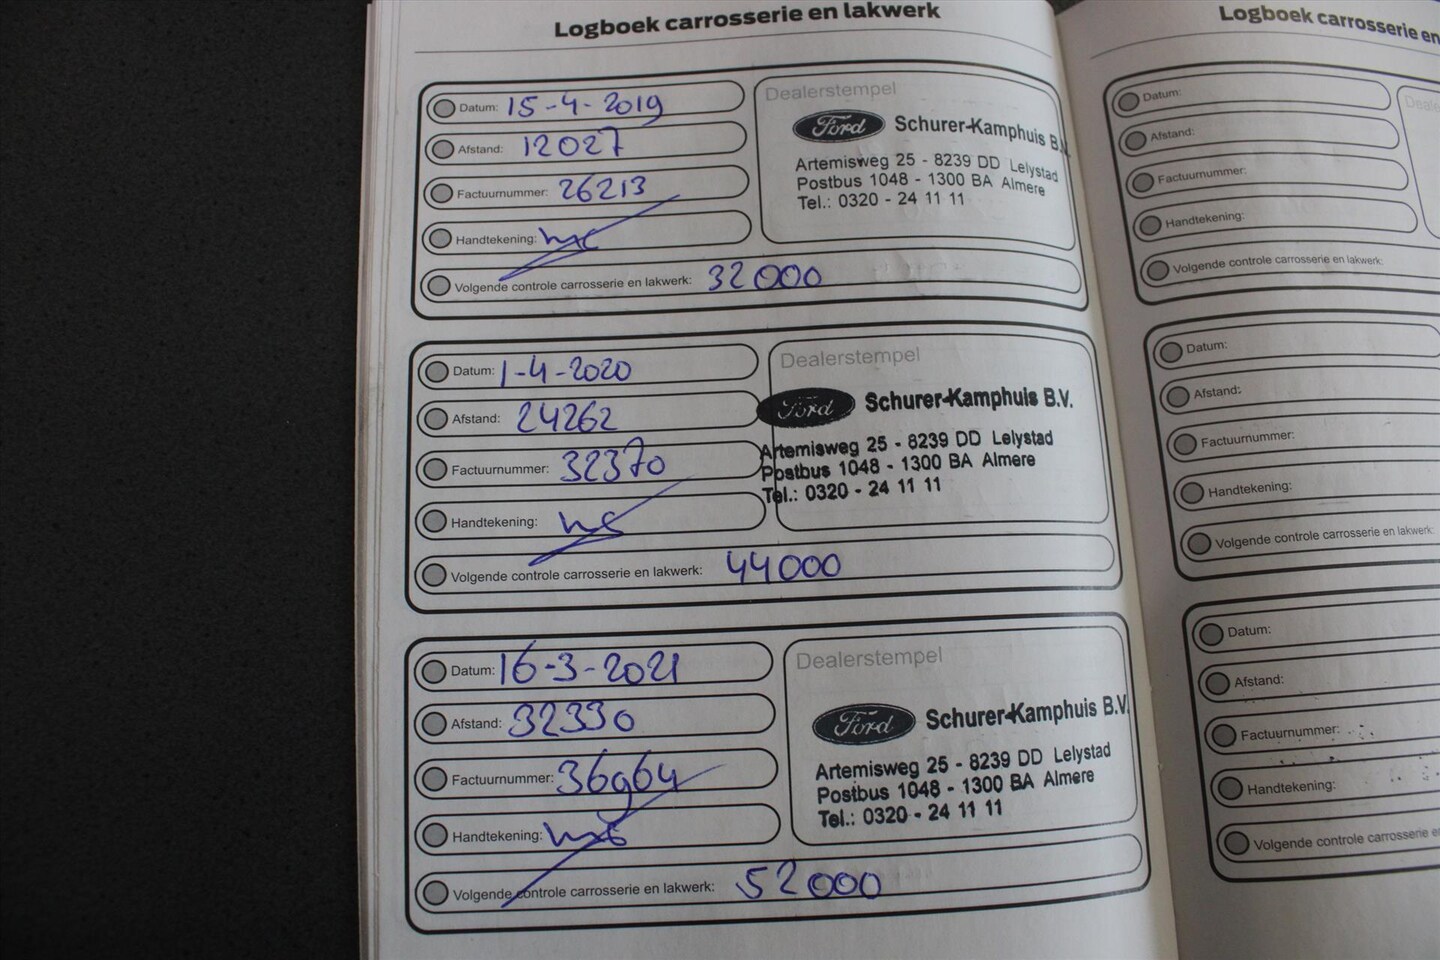 Logboek carrosserie en lakwerk
Datum: 15-4-2019
Afstand: 12027
Factuurnummer: 26213
Handtekening:
Volgende controle carrosserie en lakwerk: 32000
Dealerstempel
Ford Schurer-Kamphuis B.V.
Artemisweg 25 - 8239 DD Lelystad
Postbus 1048 - 1300 BA Almere
Tel.: 0320 - 24 11 11
Datum: 1-4-2020
Afstand: 24262
Factuurnummer: 32370
Handtekening:
Volgende controle carrosserie en lakwerk: 44000
Dealerstempel
Ford Schurer-Kamphuis B.V.
Artemisweg 25 - 8239 DD Lelystad
Postbus 1048 - 1300 BA Almere
Tel.: 0320 - 24 11 11
Datum: 16-3-2021
Afstand: 32330
Factuurnummer: 36964
Handtekening:
Volgende controle carrosserie en lakwerk: 52000
Dealerstempel
Ford Schurer-Kamphuis B.V.
Artemisweg 25 - 8239 DD Lelystad
Postbus 1048 - 1300 BA Almere
Tel.: 0320 - 24 11 11
Logboek carrosserie en
Datum:
Afstand:
Factuurnummer:
Handtekening:
Volgende controle carrosserie en lakwerk:
Datum:
Afstand:
Factuurnummer:
Handtekening:
Volgende controle carrosserie en lakwerk:
Datum:
Afstand:
Factuurnummer:
Handtekening:
Volgende controle carrosserie e